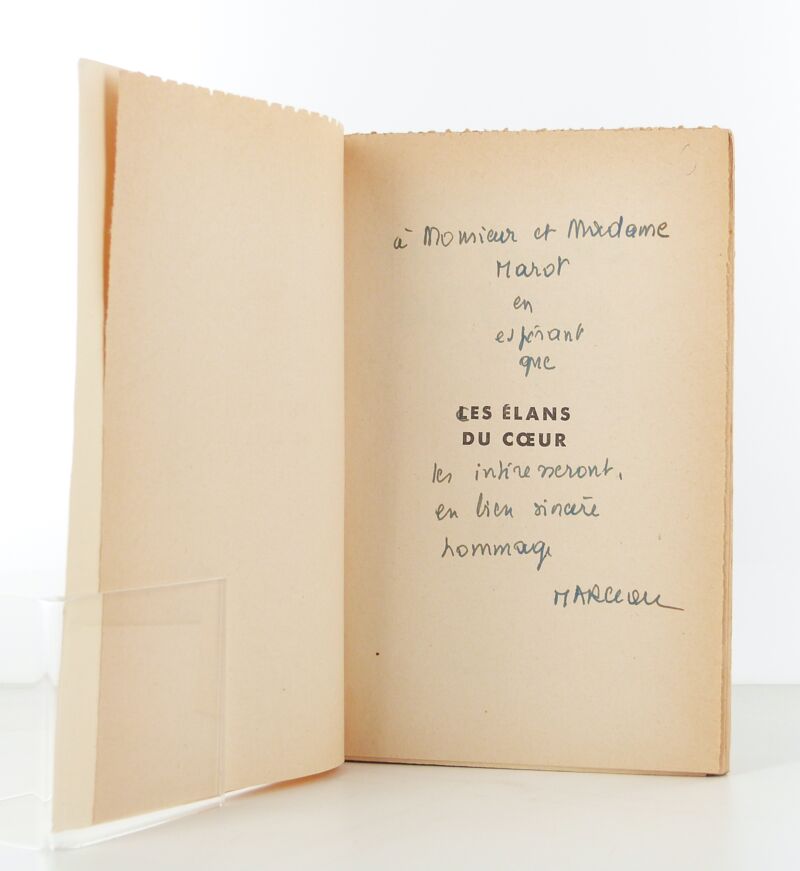 à Monsieur et Madame
Marot
en
espérant
que
LES ÉLANS
DU CŒUR
les intéresseront,
en bien sincère
hommage